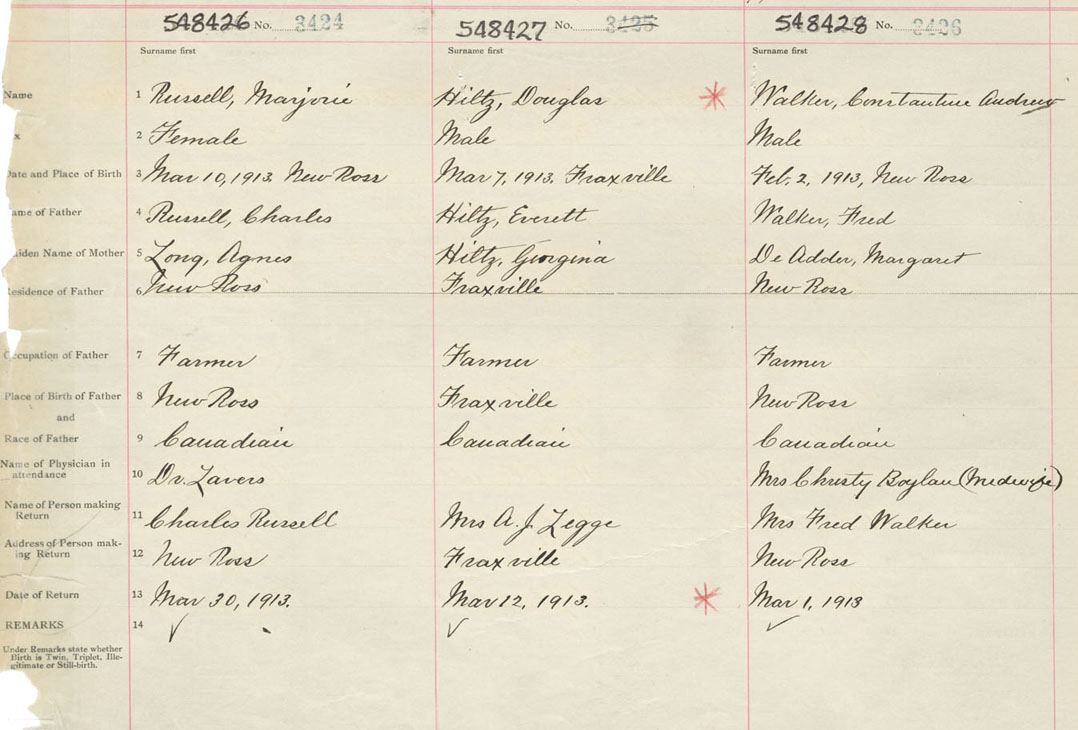 548426 No. 3424 548427 No. 3425 548428 No. 3426
Surname first Surname first Surname first
Name 1 Russell, Marjorie Hiltz, Douglas Walker, Constantine Andrew
x 2 Female Male Male
Date and Place of Birth 3 Mar 10, 1913. New Ross Mar 7, 1913. Fraxville Feb. 2, 1913, New Ross
ame of Father 4 Russell, Charles Hiltz, Everett Walker, Fred
aiden Name of Mother 5 Long, Agnes Hiltz, Georgina De Adder, Margaret
Residence of Father 6 New Ross Fraxville New Ross
Occupation of Father 7 Farmer Farmer Farmer
Place of Birth of Father 8 New Ross Fraxville New Ross
and
Race of Father 9 Canadian Canadian Canadian
Name of Physician in
attendance 10 Dr. Lavers Mrs Christy Boylan (Midwife)
Name of Person making
Return 11 Charles Russell Mrs A. J. Legge Mrs Fred Walker
Address of Person mak-
ing Return 12 New Ross Fraxville New Ross
Date of Return 13 Mar 30, 1913. Mar 12, 1913. Mar 1, 1913
REMARKS 14
Under Remarks state whether
Birth is Twin, Triplet, Ille-
gitimate or Still-birth.